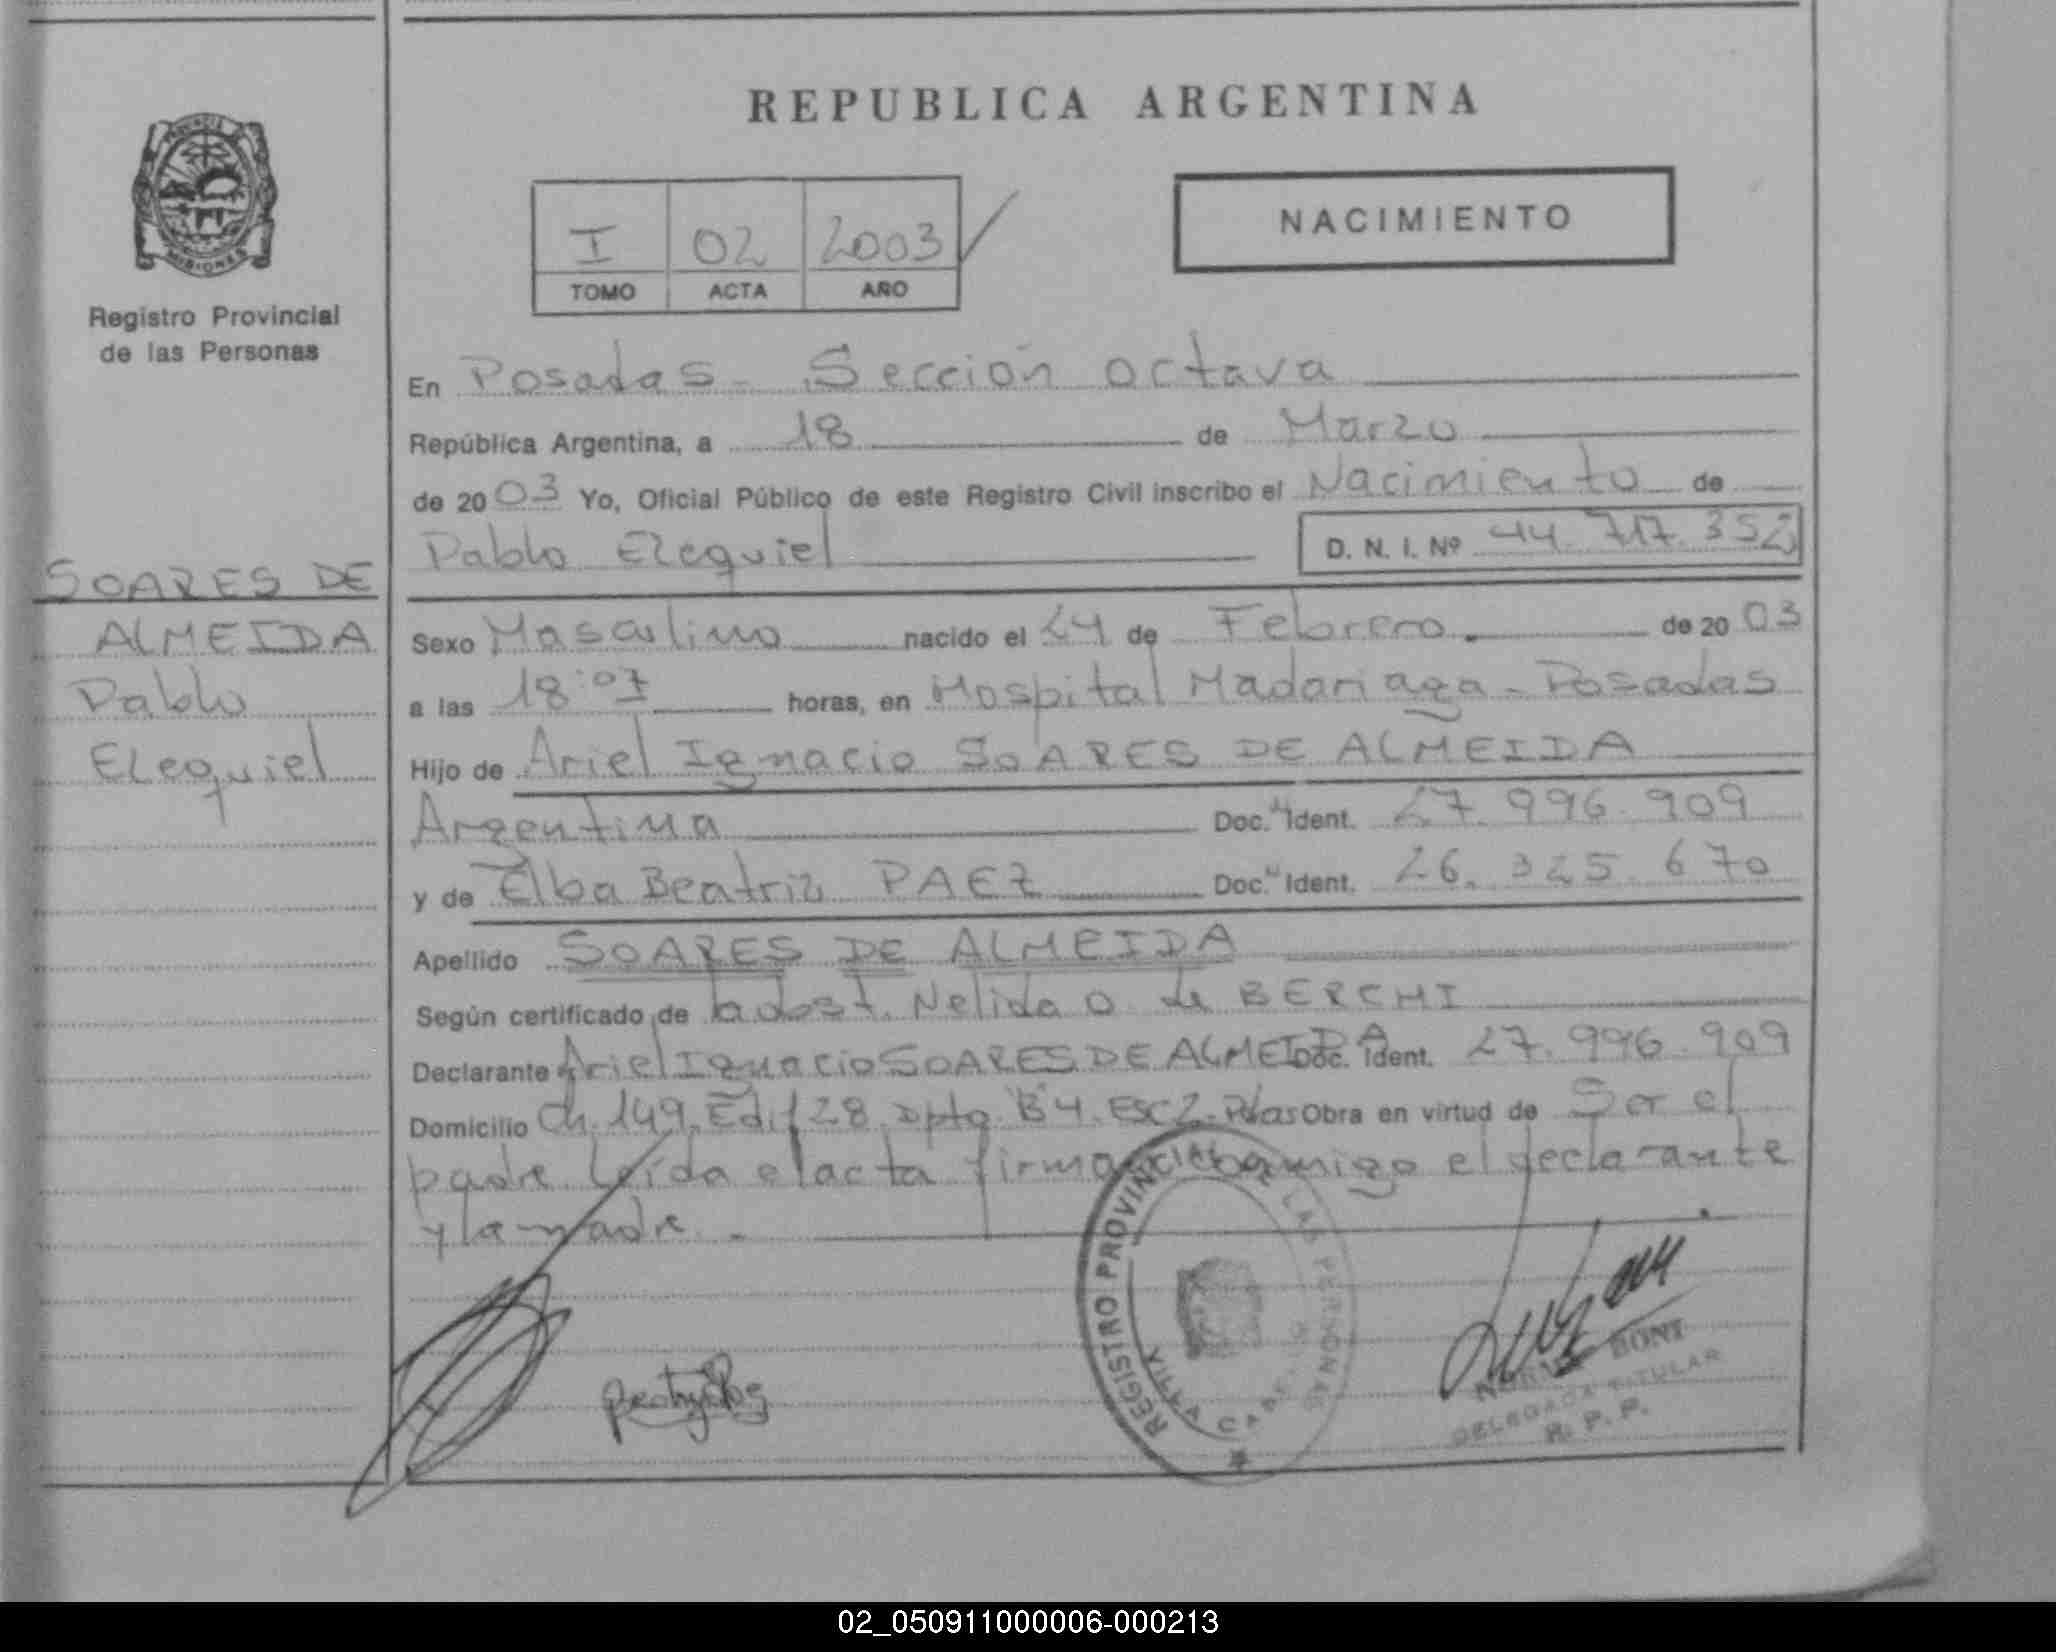 REPUBLICA ARGENTINA
PROVINCIA
MISIONES
Registro Provincial
de las Personas
I 02 2003
TOMO ACTA AÑO
NACIMIENTO
En Posadas - Sección octava
República Argentina, a 18 de Marzo
de 2003 Yo, Oficial Público de este Registro Civil inscribo el Nacimiento de
Pablo Ezequiel D. N. I. Nº 44.717.352
SOARES DE
ALMEIDA
Pablo
Ezequiel
Sexo Masculino nacido el 24 de Febrero de 2003
a las 18:07 horas, en Hospital Madariaga - Posadas
Hijo de Ariel Ignacio SOARES DE ALMEIDA
Argentina Doc. Ident. 27.996.909
y de Elba Beatriz PAEZ Doc. Ident. 26.325.670
Apellido SOARES DE ALMEIDA
Según certificado de la obst. Nelida O. de BERCHI
Declarante Ariel Ignacio SOARES DE ALMEIDA Doc. Ident. 27.996.909
Domicilio Ch. 149. Edif 28. Dpto. B4. Esc 2. Pdas Obra en virtud de Ser el
padre. Leída el acta firma conmigo el declarante
y la madre. -
REGISTRO PROVINCIAL DE LAS PERSONAS
BONT
DELEGADA TITULAR
R. P. P.
02_050911000006-000213